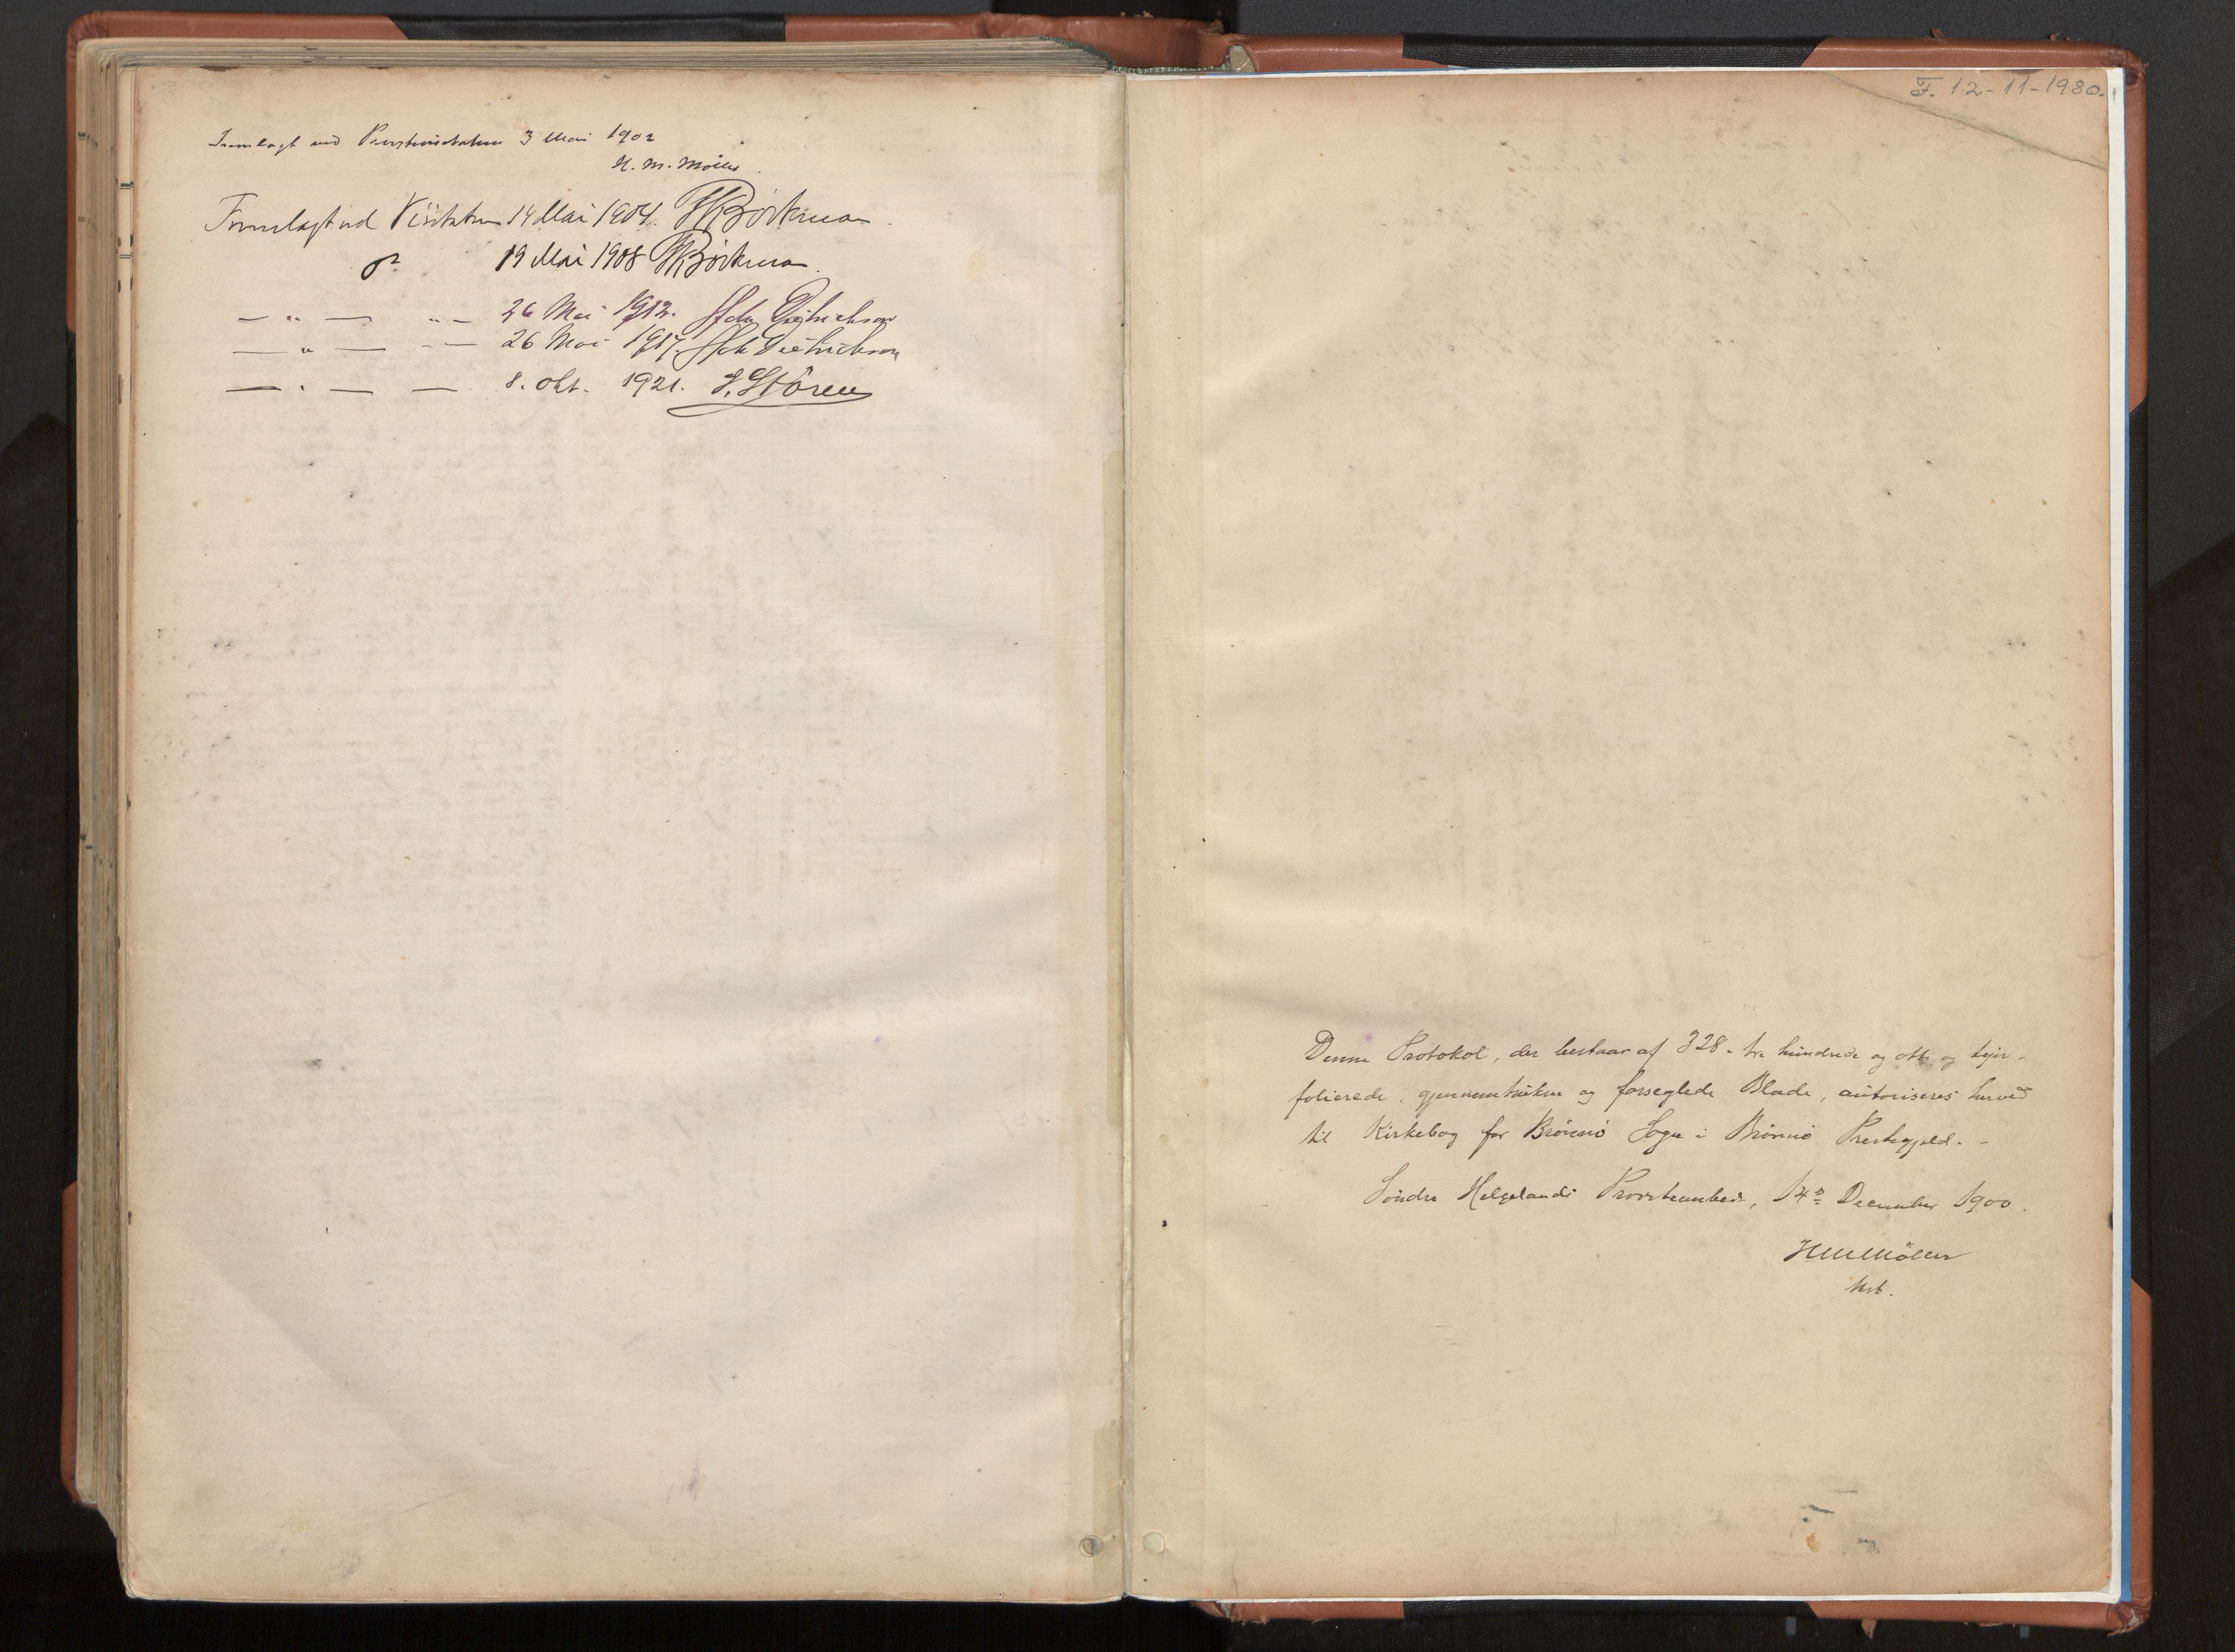 Fremlagt ved Provstevisitatsen 3 Mai 1902
H. M. Møller.
Fremlagt ved Visitatsen 14 Mai 1904.
do 19 Mai 1908
— " — " — 26 Mai 1912. Dietrichson
— " — " — 26 Mai 1917. Dietrichson
— " — — 8. okt. 1921. J. Støren
F. 12-11-1980.
Denne Protokol, der bestaar af 328 - tre hundrede og otte og tyve -
folierede, gjennemtrukne og forseglede Blade, autoriseres herved
til Kirkebog for Brönnö Sogn i Brönnö Prestegjeld. -
Söndre Helgelands Provsteembede, 14de December 1900.
H M Möller
kst.